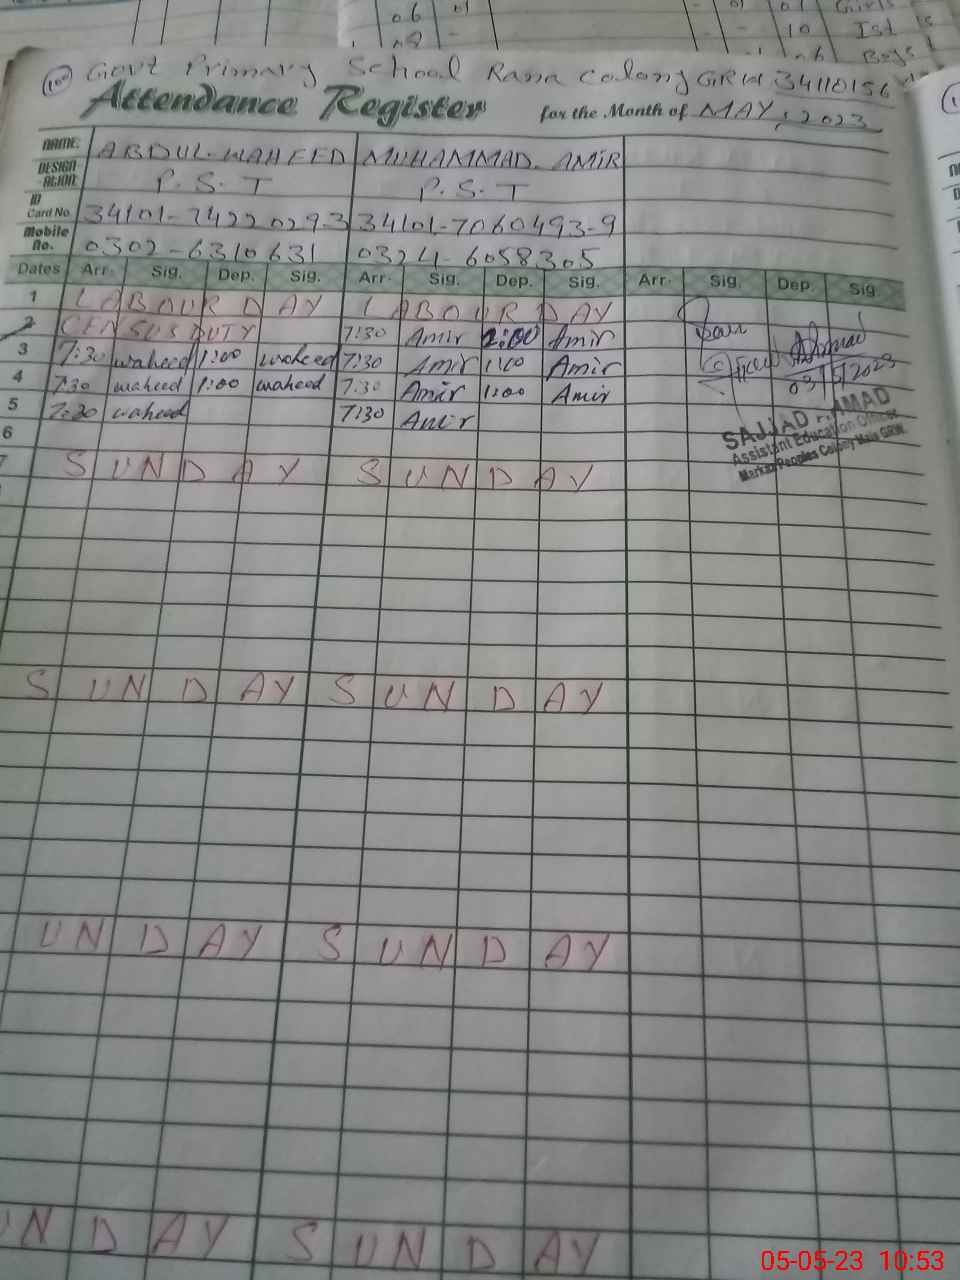 06
10 Ist
Boys
100 Govt Primary School Rana Colony GRW 34110156
Attendance Register for the Month of MAY, 2023
NAME: ABDUL WAHEED MUHAMMAD. AMIR
DESIGN-ATION: P.S.T P.S.T
ID Card No. 34101-7422029-3 34101-7060493-9
Mobile No. 0302-6310631 0324-6058305
Dates Arr. Sig. Dep. Sig. Arr. Sig. Dep. Sig. Arr. Sig. Dep. Sig
1 LABOUR DAY LABOUR DAY
2 CENSUS DUTY 7:30 Amir 1:00 Amir
3 7:30 waheed 1:00 waheed 7:30 Amir 1:00 Amir
4 7:30 waheed 1:00 waheed 7:30 Amir 1:00 Amir
5 7:30 waheed 7:30 Amir
6
7 SUNDAY SUNDAY
03/5/2023
SAJJAD AHMAD
Assistant Education Officer
Markaz Peoples Colony Male GRW
SUNDAY SUNDAY
UNDAY SUNDAY
UNDAY SUNDAY
05-05-23 10:53